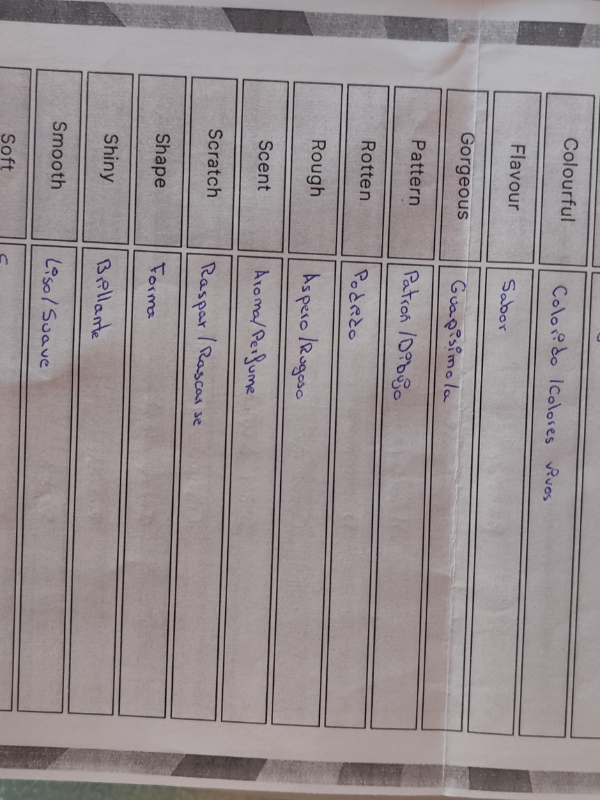 Colourful Colorido /colores vivos
Flavour Sabor
Gorgeous Guapísimo/a
Pattern Patrón/Dibujo
Rotten Podrido
Rough Áspero/Rugoso
Scent Aroma/Perfume
Scratch Raspar/Rascarse
Shape Forma
Shiny Brillante
Smooth Liso/Suave
Soft